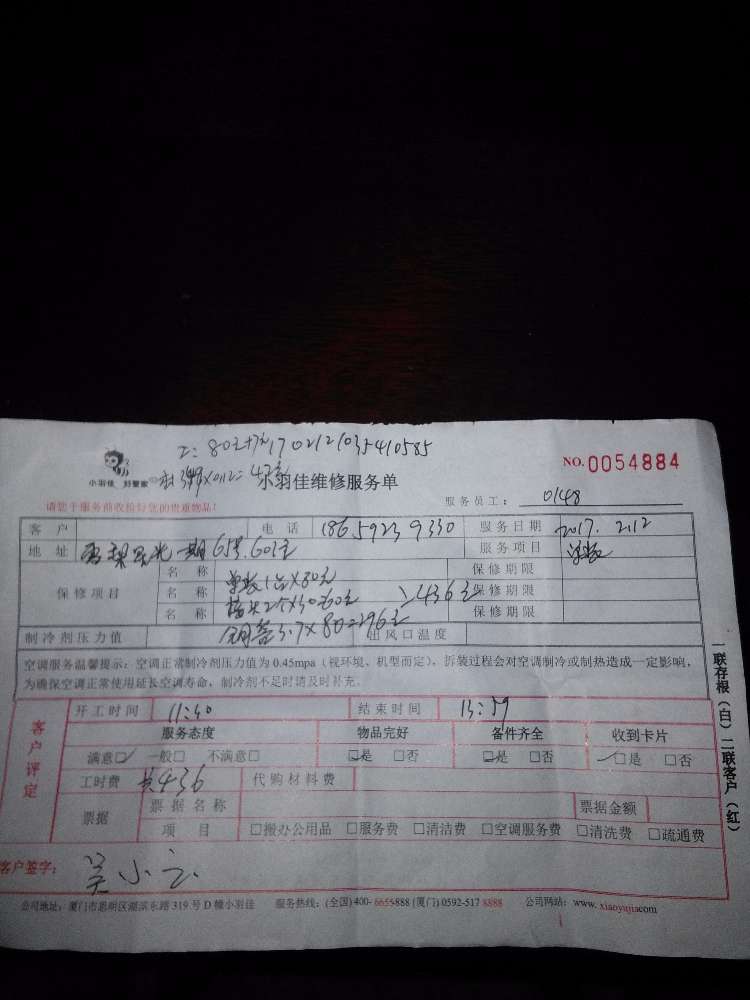 工: 80元+7元1702121035410585
小羽佳 好管家
小羽佳维修服务单
NO. 0054884
请您于服务前收拾好您的贵重物品!
服务员工: 0148
客户 电话 18659239330 服务日期 2017. 2.12
地址 一期65号.603室 服务项目 单装
保修项目 名称 单装1台X80元 保修期限
名称 2个X30=60元 436元 保修期限
名称 铜管3.7X80=296元 保修期限
制冷剂压力值 出风口温度
空调服务温馨提示: 空调正常制冷剂压力值为 0.45mpa (视环境、机型而定), 拆装过程会对空调制冷或制热造成一定影响,
为确保空调正常使用延长空调寿命, 制冷剂不足时请及时补充。
一联存根 (白) 二联客户 (红)
客户评定
开工时间 11:50 结束时间 13:59
服务态度 物品完好 备件齐全 收到卡片
满意☑ 一般□ 不满意□ ☑是 □否 ☑是 □否 ☑是 □否
工时费 共436 代购材料费
票据 票据名称 票据金额
项目 □搬办公用品 □服务费 □清洁费 □空调服务费 □清洗费 □疏通费
客户签字: 吴小云
公司地址: 厦门市思明区湖滨东路 319 号 D 幢小羽佳 服务热线: (全国) 400-6655888 (厦门) 0592-517 8888 公司网站: www.xiaoyujia.com